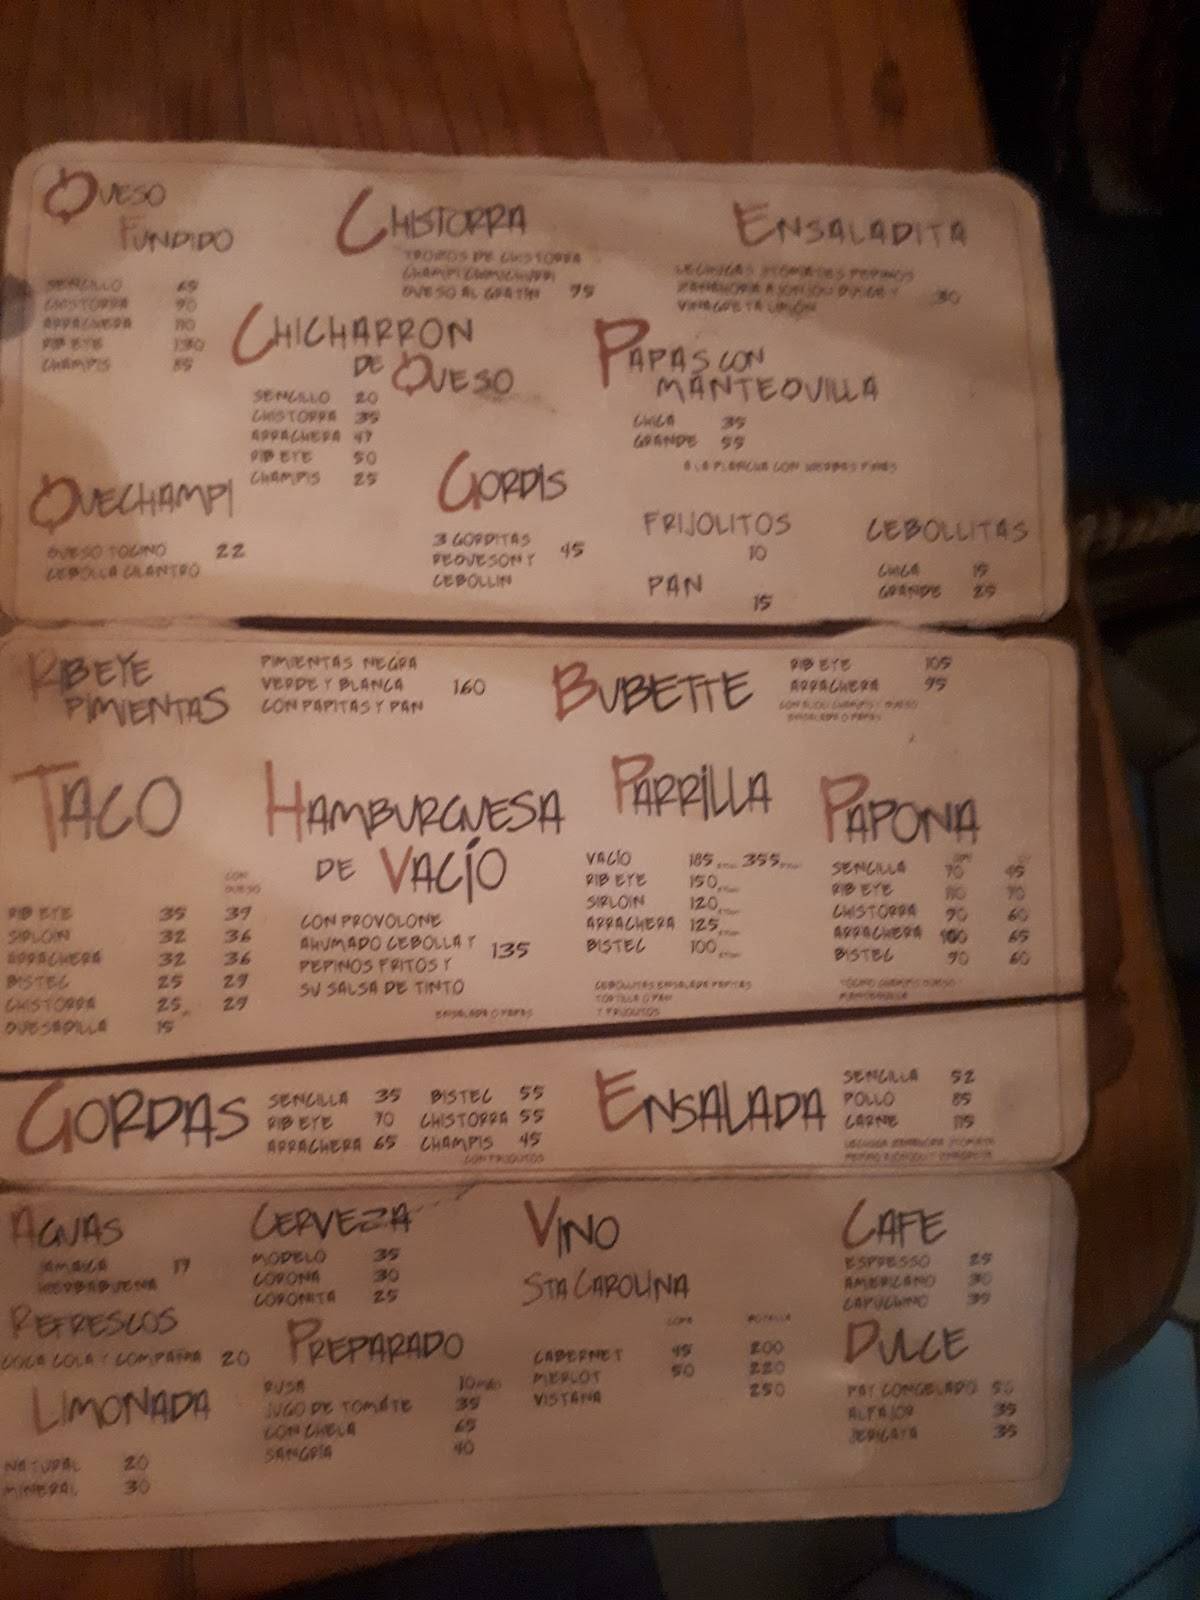 QUESO
FUNDIDO
SENCILLO 65
CHISTORRA 90
ARRACHERA 110
RIB EYE 130
CHAMPIS 85
CHISTORRA
TROZOS DE CHISTORRA
CHAMPI CHIMICHURRI
QUESO AL GRATIN 75
ENSALADITA
LECHUGAS JITOMATES PEPINOS
ZANAHORIA AJONJOLI DULCE Y 30
VINAGRETA LIMÓN
CHICHARRON
DE QUESO
SENCILLO 20
CHISTORRA 35
ARRACHERA 47
RIB EYE 50
CHAMPIS 25
PAPAS CON
MANTEQUILLA
CHICA 35
GRANDE 55
A LA PLANCHA CON HIERBAS FINAS
QUECHAMPI
QUESO TOCINO 22
CEBOLLA CILANTRO
GORDIS
3 GORDITAS
REQUESON Y 45
CEBOLLIN
FRIJOLITOS
10
PAN
15
CEBOLLITAS
CHICA 15
GRANDE 25
RIBEYE
PIMIENTAS
PIMIENTAS NEGRA
VERDE Y BLANCA 160
CON PAPITAS Y PAN
BUBETTE
RIB EYE 105
ARRACHERA 95
ENSALADA O PAPAS
TACO
CON
QUESO
RIB EYE 35 39
SIRLOIN 32 36
ARRACHERA 32 36
BISTEC 25 29
CHISTORRA 25 29
QUESADILLA 15
HAMBURGUESA
DE VACÍO
CON PROVOLONE
AHUMADO CEBOLLA Y 135
PEPINOS FRITOS Y
SU SALSA DE TINTO
ENSALADA O PAPAS
PARRILLA
VACÍO 185 355
RIB EYE 150
SIRLOIN 120
ARRACHERA 125
BISTEC 100
CEBOLLITAS ENSALADA PAPITAS
TORTILLA O PAN
Y FRIJOLITOS
PAPONA
SENCILLA 70 45
RIB EYE 110 70
CHISTORRA 90 60
ARRACHERA 100 65
BISTEC 90 60
TOCINO CHAMPIS QUESO
MANTEQUILLA
GORDAS
SENCILLA 35 BISTEC 55
RIB EYE 70 CHISTORRA 55
ARRACHERA 65 CHAMPIS 45
CON FRIJOLITOS
ENSALADA
SENCILLA 52
POLLO 85
CARNE 115
AGUAS
JAMAICA 17
HIERBABUENA
REFRESCOS
COCA COLA Y COMPAÑIA 20
LIMONADA
NATURAL 20
MINERAL 30
CERVEZA
MODELO 35
CORONA 30
CORONITA 25
PREPARADO
RUSA 10 más
JUGO DE TOMATE 35
CON CHELA 65
SANGRÍA 40
VINO
STA CAROLINA
COPA BOTELLA
CABERNET 45 200
MERLOT 50 220
VISTAÑA 250
CAFE
ESPRESSO 25
AMERICANO 30
CAPUCHINO 35
DULCE
PAY CONGELADO 50
ALFAJOR 35
JERICAYA 35